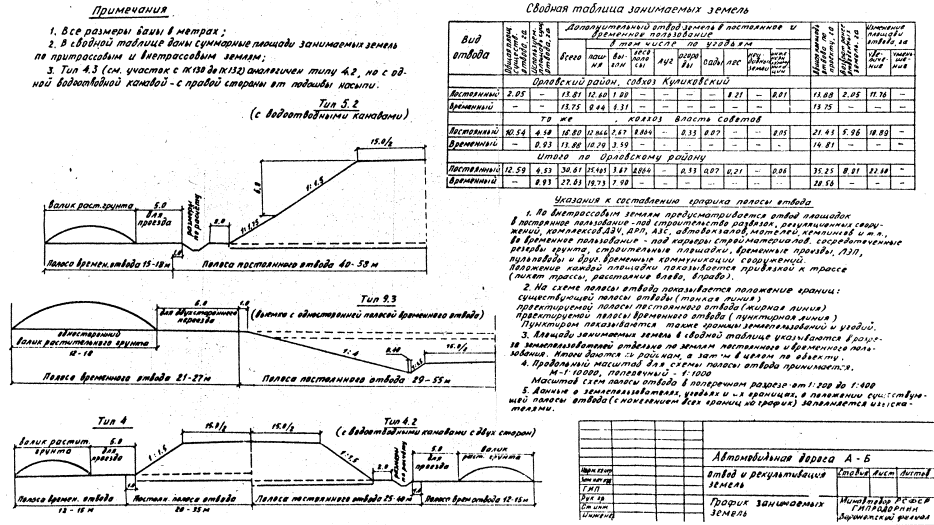 Примечания
1. Все размеры даны в метрах;
2. В сводной таблице даны суммарные площади занимаемых земель
по притрассовым и внетрассовым землям;
3. Тип 4.3 (см. участок с ПК130 до ПК132) аналогичен типу 4.2, но с од-
ной водоотводной канавой - с правой стороны от подошвы насыпи.
Тип 5.2
(с водоотводными канавами)
15.0/2
6.0
1:1.5
1:1.75
валик раст. грунта
5.0
для
проезда
размеры
по расчёту
2.0
1.0
Полоса времен. отвода 15-18м
Полоса постоянного отвода 40-59 м
Тип 9.3
(выемка с односторонней полосой временного отвода)
6.0
для двухстороннего
переезда
односторонний
валик растительного грунта
12-18
1:4
0.40
15.0/2
Полоса временного отвода 21-27м
Полоса постоянного отвода 29-55 м
Тип 4
Тип 4.2
(с водоотводными канавами с двух сторон)
валик растит.
грунта
5.0
для
проезда
15.0/2
15.0/2
1:1.5
1:1.5
2.0
размеры
по расчёту
5.0
для
проезда
валик
раст. грунта
1.0
1.0
Полоса времен. отвода
12-15 м
Постоян. полоса отвода
20-35 м
Полоса постоянного отвода 25-40 м
Полоса времен отвода 12-15м
Сводная таблица занимаемых земель
Вид
отвода
Дополнительный отвод земель в постоянное и
временное пользование
в том числе по угодьям
Всего
пашня
выгон
лесополосы
луг
огороды
сады
лес
неудобные земли
Изменение
площади
отвода, га
увеличение
уменьшение
Орловский район, совхоз Куликовский
Постоянный 2.05 13.81 12.60 1.00 – – – – 0.21 – 0.01 13.88 2.05 11.76 –
Временный – – 13.75 9.44 4.31 – – – – – – – 13.75
то же, колхоз Власть Советов
Постоянный 10.54 4.58 16.80 12.866 2.67 0.864 – 0.33 0.07 – – 0.05 21.43 5.96 10.89 –
Временный – 0.93 13.88 10.29 3.59 – – – – – – – 14.81
Итого по Орловскому району
Постоянный 12.59 4.53 30.61 25.463 3.67 0.864 – 0.33 0.07 0.21 – 0.06 35.25 8.01 22.60 –
Временный – 0.93 27.63 19.73 7.90 – – – – – – – 28.56
Указания к составлению графика полосы отвода
1. По внетрассовым землям предусматривается отвод площадок
в постоянное пользование - под строительство развязок, регуляционных соору-
жений, комплексов ДЭУ, ДРП, АЗС, автовокзалов, мотелей, кемпингов и т.п.,
во временное пользование - под карьеры стройматериалов, сосредоточенные
резервы грунта, строительные площадки, временные проезды, ЛЭП,
пульповоды и друг. временные коммуникации сооружений.
Положение каждой площадки показывается привязкой к трассе
(пикет трассы, расстояние влево, вправо).
2. На схеме полосы отвода показывается положение границ:
существующей полосы отводы (тонкая линия)
проектируемой полосы постоянного отвода (жирная линия)
проектируемой полосы временного отвода (пунктирная линия)
Пунктиром показываются также границы землепользований и угодий.
3. Площади занимаемых земель в сводной таблице указываются в разре-
зе землепользователей отдельно по землям постоянного и временного поль-
зования. Итоги даются по районам, а затем в целом по объекту.
4. Продольный масштаб для схемы полосы отвода принимается,
М-1:10000, поперечный - 1:1000
Масштаб схем полосы отвода в поперечном разрезе от 1:200 до 1:400
5. Данные о землепользователях, угодьях и их границах, о положении существую-
щей полосы отвода (с нанесением всех границ на график) заполняется изыска-
телями.
Автомобильная дорога А - Б
отвод и рекультивация
земель
Стадия Лист Листов
График занимаемых
земель
ГИП
Рук. гр
Ст. инж
Инженер
Минавтодор РСФСР
ГИПРОДОРНИИ
Воронежский филиал